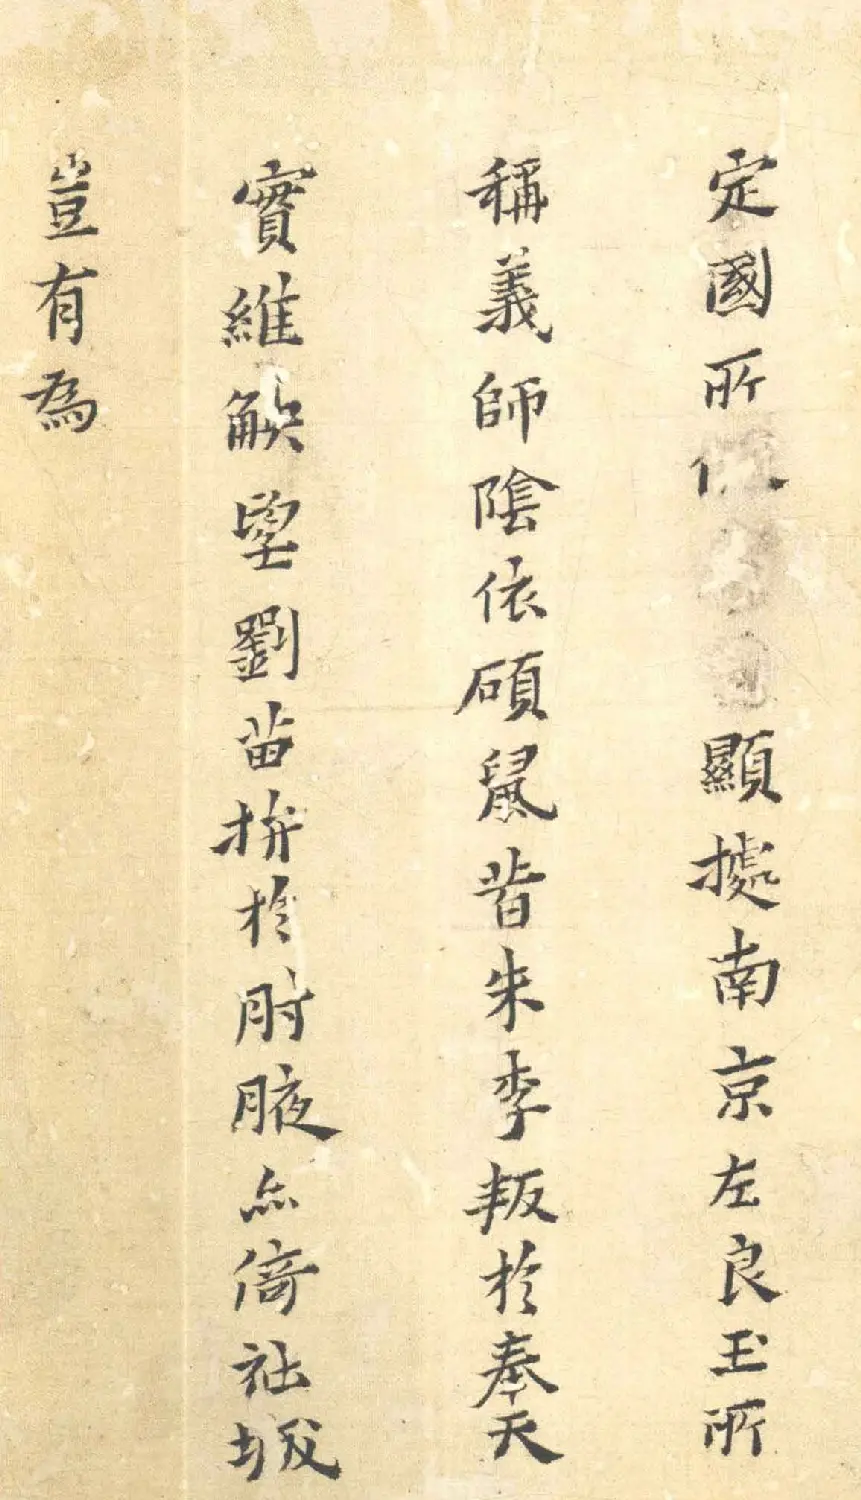 定國所顯據南京左良玉所
稱義師陰依碩鼠昔朱李叛於奉天
實維觖望劉苗拚於肘腋亦倚社城
豈有為